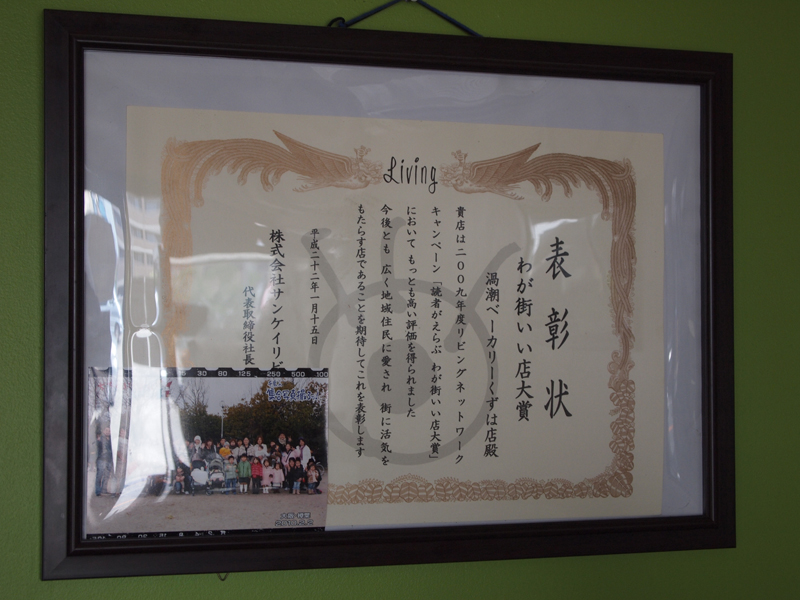 Living
表彰状
わが街いい店大賞
渦潮ベーカリーくずは店殿
貴店は二００九年度リビングネットワーク
キャンペーン「読者がえらぶ わが街いい店大賞」
において もっとも高い評価を得られました
今後とも 広く地域住民に愛され 街に活気を
もたらす店であることを期待してこれを表彰します
平成二十二年一月十五日
株式会社サンケイリビ
代表取締役社長
30 60 125 250 500 100
2010.2.2